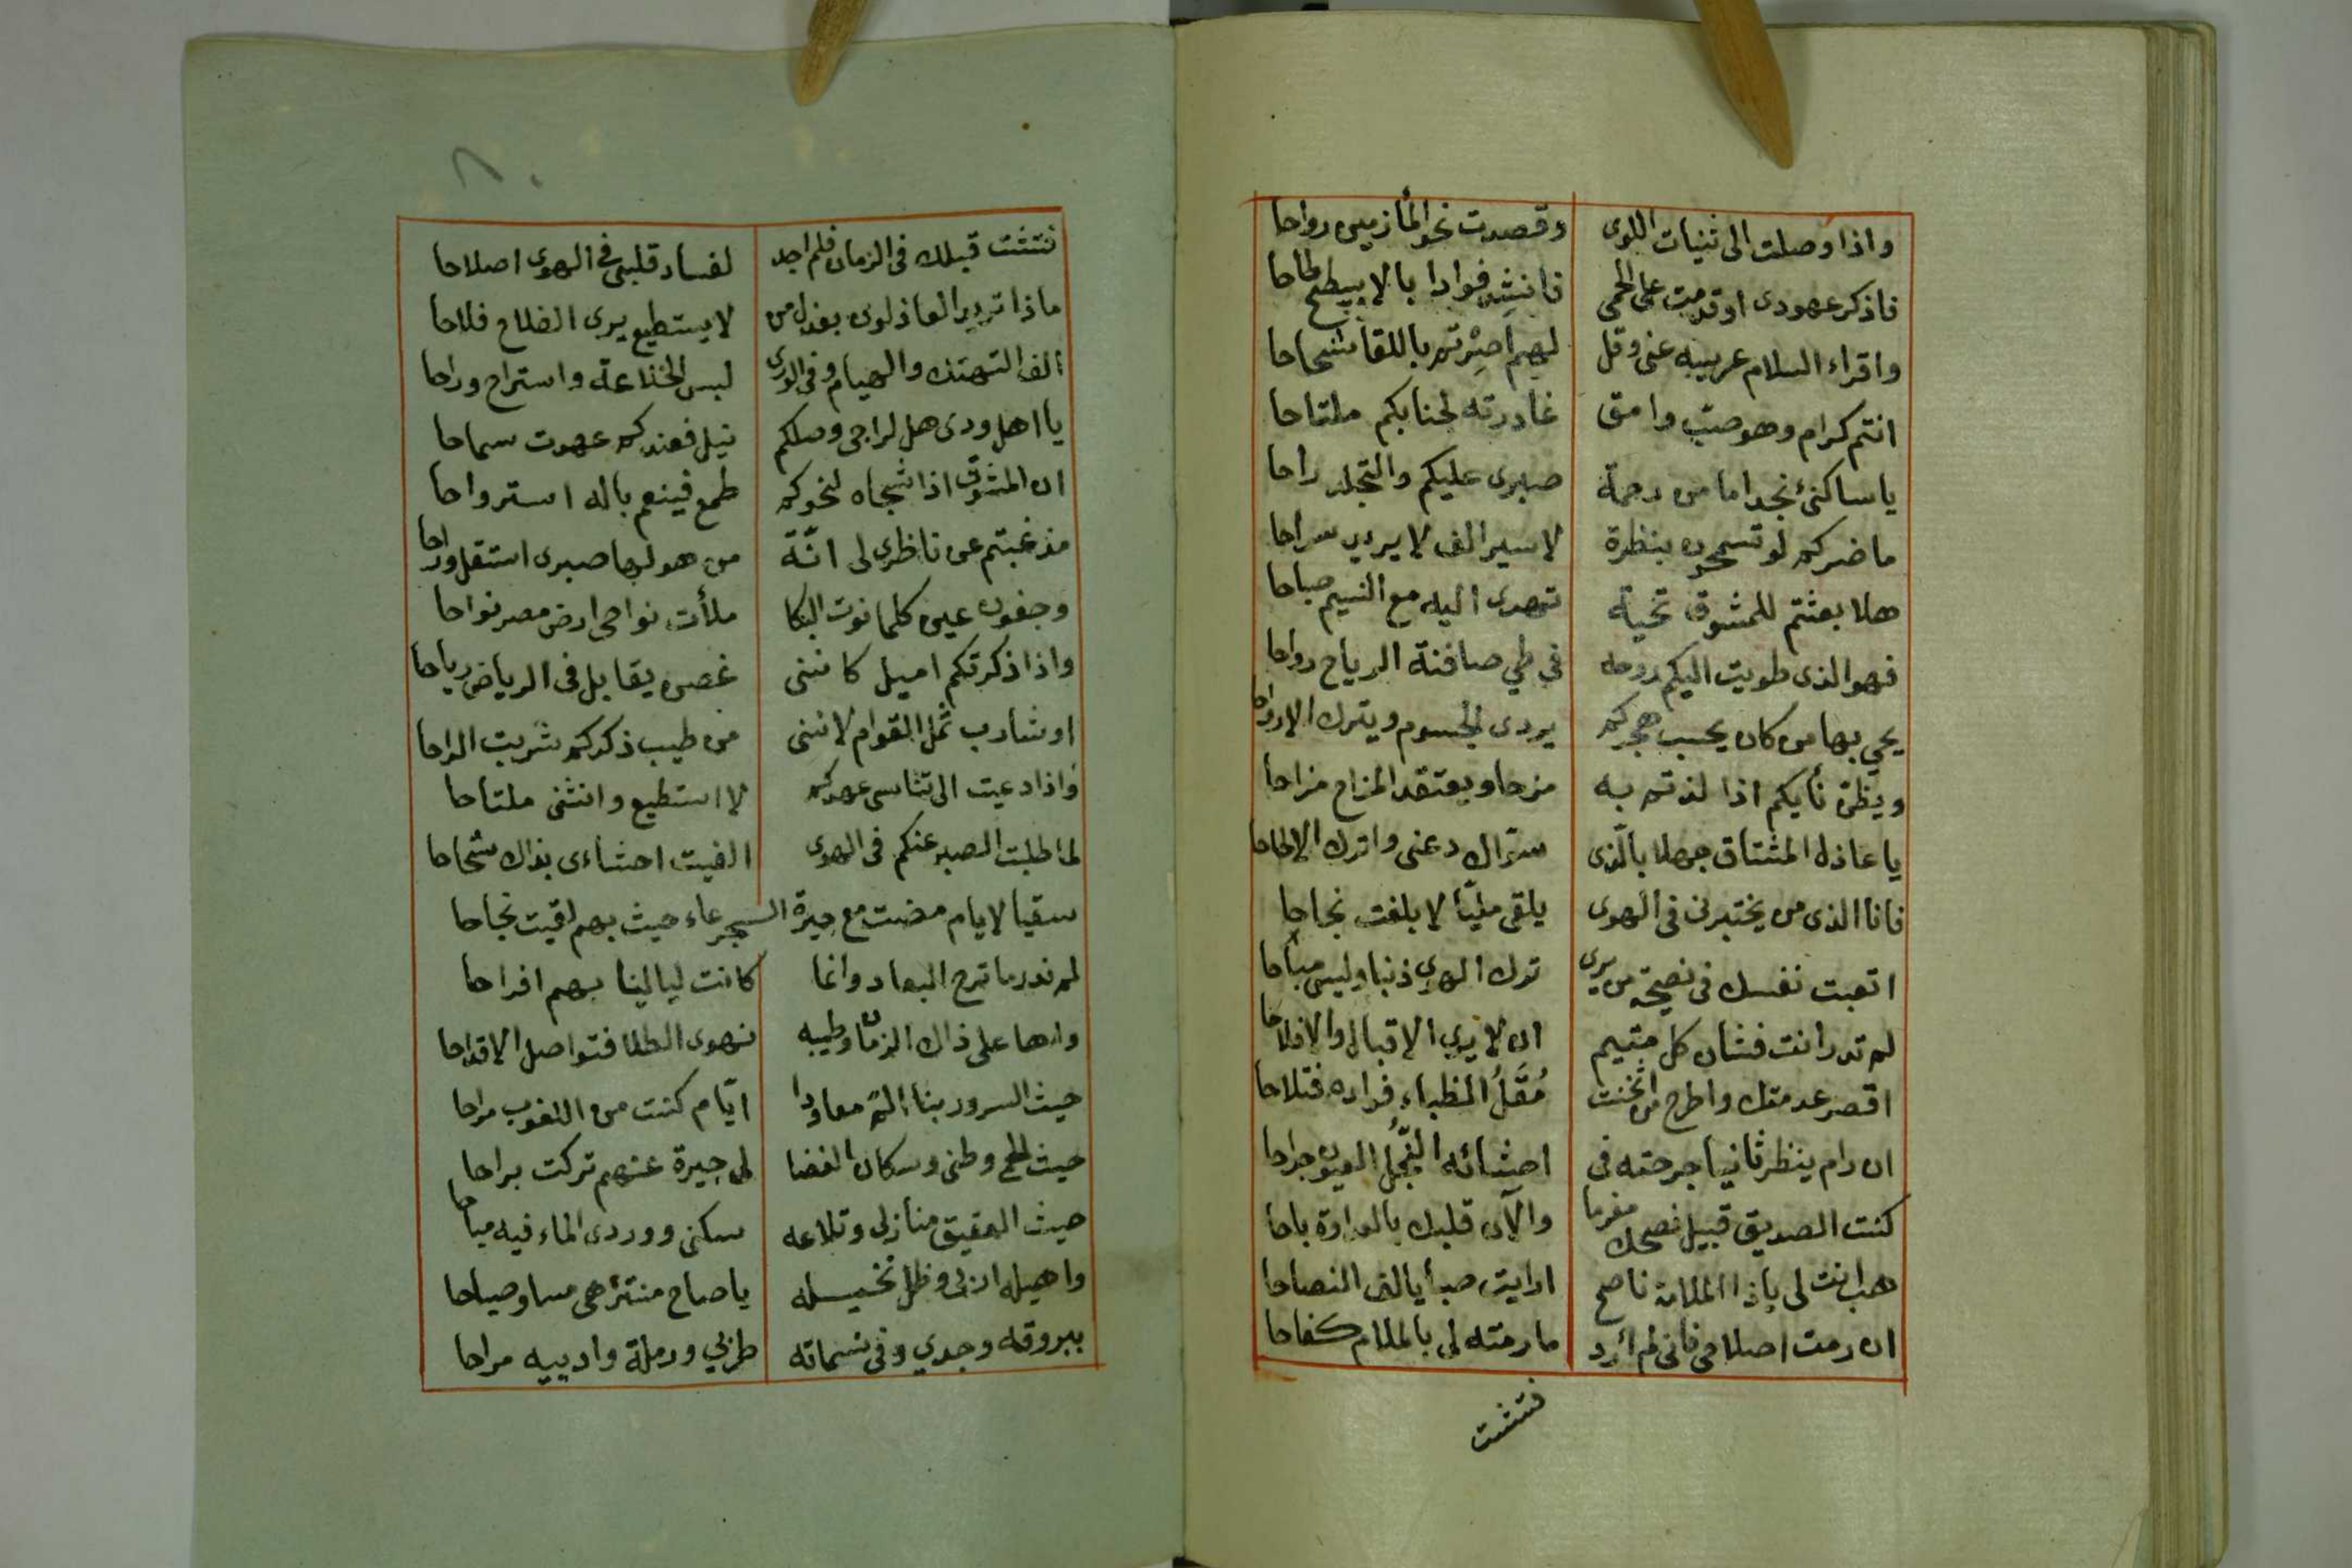 واذا وصلت الى ثنيات اللوى وقصدت نحو المأزمين رواحا
فاذكر عهودى اوقدمت على الحمى فانشد فوادا بالابيطح طاحا
واقراء السلام عريبه عنى وقل لهم اصرتم باللقا شحاحا
انتم كرام وهو صب وامق غادرته لجنابكم ملتاحا
يا ساكنى نجد اما من رحمة صبرى عليكم والتجلد راحا
ما ضركم لو تسمحون بنظرة لاسير الف لا يريد سراحا
هلا بعثتم للمشوق تحية تهدى اليه مع النسيم صباحا
فهو الذى طويت اليكم روحه في طي صافنة الرياح رواحا
يحي بها من كان يحسب هجركم يردى الجسوم ويترك الارواحا
ويظن نأيكم اذا لذتم به مزحا ويعتقد المزاح مزاحا
يا عاذل المشتاق جهلا بالذى ستراك دعنى واترك الالحاحا
فانا الذى من يختبرنى فى الهوى يلقى مليا لا بلغت نجاحا
اتعبت نفسك فى نصيحة من يرى ترك الهوى ذنبا وليس مباحا
لم تدر انت فشان كل متيم ان لا يرى الاقبال والافلاحا
اقصر عدمتك واطرح من اثخنت مقل الظباء فواده فتلاحا
ان رام ينظر ثانيا جرحته فى احشائه النجل العيون جراحا
كنت الصديق قبيل نصحك مغرما والآن قلبك بالعداوة باحا
هب انت لى ياذا الملامة ناصح ارايت صبا يالف النصاحا
ان رمت اصلاحى فانى لم أرد ما رمته لى بالملام كفاحا
فتشت
فتشت قبلك فى الزمان فلم اجد لفساد قلبى فى الهوى اصلاحا
ماذا تريد العاذلون بعذل من لا يستطيع يرى الفلاح فلاحا
الف التهتك والهيام وفى الورى لبس الخلاعة واستراح وراحا
يا اهل ودى هل لراجى وصلكم نيل فعندكم عهدت سماحا
ان المشوق اذا شجاه لنحوكم طمع فينعم باله استرواحا
مذ غبتم عن ناظرى لى انة من هولها صبرى استقل وراحا
وجفون عين كلما نوت البكا ملأت نواحى ارض مصر نواحا
واذا ذكرتكم اميل كاننى غصن يقابل فى الرياض رياحا
او شارب ثمل القوام لاننى من طيب ذكركم شربت الراحا
واذا دعيت الى تناسى عهدكم لا استطيع وانثنى ملتاحا
لما طلبت الصبر عنكم فى الهوى الفيت احشاءى بذاك شحاحا
سقيا لايام مضت مع جيرة الجرعاء حيث بهم لقيت نجاحا
لم ندر ما ترح البعاد وانما كانت ليالينا بهم افراحا
واها على ذاك الزمان وطيبه نهوى الطلا فتواصل الاقداحا
حيث السرور بنا الم معاودا ايام كنت من اللغوب مراحا
حيث الحمى وطنى وسكان الغضا لى جيرة عنهم تركت براحا
حيث العقيق منازلى وتلاعه سكنى ووردى الماء فيه مباحا
واهيله اربى وظل نخيله يا صاح منتزهى مسا وصباحا
ببروقه وجدي وفى نسماته طربي ورملة واديه مراحا